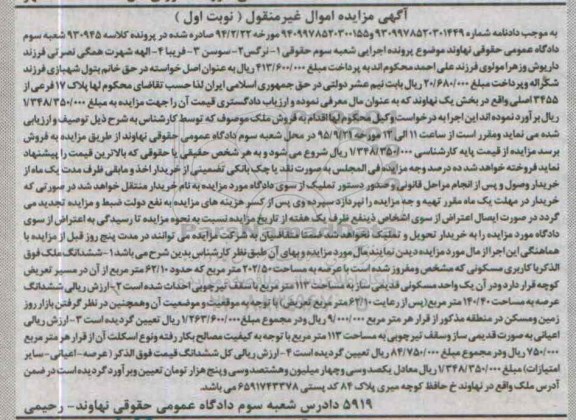 آگهی مزایده اموال غیرمنقول ( نوبت اول )
به موجب دادنامه شماره ۹۳۰۹۹۷۸۵۲۰۳۰۱۴۴۹ و ۹۴۰۹۹۷۸۵۲۰۳۰۰۱۵۵ مورخه ۹۴/۲/۲۲ صادره شده در پرونده کلاسه ۹۳۰۹۴۵ شعبه سوم
دادگاه عمومی حقوقی نهاوند موضوع پرونده اجرایی شعبه سوم حقوقی ۱-نرگس ۲- سوسن ۳- فریبا ۴- الهه شهرت همگی نصرتی فرزند
داریوش وزهرا مولوی فرزند علی احمد محکوم اند به پرداخت مبلغ ۴۱۳/۶۰۰/۰۰۰ ریال به عنوان اصل خواسته در حق خانم بتول شهبازی فرزند
شکرااله وپرداخت مبلغ ۲۰/۶۸۰/۰۰۰ ریال بابت نیم عشر دولتی در حق جمهوری اسلامی ایران لذا حسب تقاضای محکوم لها پلاک ۱۷ فرعی از
۳۴۵۵ اصلی واقع در بخش یک نهاوند که به عنوان مال معرفی نموده و ارزیاب دادگستری قیمت آن را جهت مزایده به مبلغ ۱/۳۴۸/۳۵۰/۰۰۰
ریال برآورد نموده اند این اجرا به درخواست وکیل محکوم لها اقدام به فروش ملک موصوف که توسط کارشناس به شرح ذیل توصیف و ارزیابی
شده می نماید ومقرر است از ساعت ۱۱ الی ۱۲ مورخه ۹۵/۹/۲۱ در محل شعبه سوم دادگاه عمومی حقوقی نهاوند از طریق مزایده به فروش
برسد مزایده از قیمت پایه کارشناسی ۱/۳۴۸/۳۵۰/۰۰۰ ریال شروع می شود و به هر شخص حقیقی یا حقوقی که بالاترین قیمت را پیشنهاد
نماید فروخته خواهد شد ده درصد وجه مزایده فی المجلس به صورت نقد یا چک بانکی تضمینی از خریدار اخذ و مابقی ظرف مدت یک ماه از
خریدار وصول و پس از انجام مراحل قانونی و صدور دستور تملیک از سوی دادگاه مورد مزایده به نام خریدار منتقل خواهد شد در صورتی که
خریدار در مهلت یک ماه مقرر تهیه و جه مزایده را نپردازد سپرده وی پس از کسر هزینه های مزایده به نفع دولت ضبط و مزایده تجدید می
گردد در صورت ایصال اعتراض از سوی اشخاص ذینفع ظرف یک هفته از تاریخ مزایده نسبت به نحوه مزایده تا رسیدگی به اعتراض از سوی
دادگاه مورد مزایده را به خریدار تحویل و تملیک نخواهد شد ضمنا متقاضیان به شرکت مزایده می توانند در مدت پنج روز قبل از مزایده با
هماهنگی این اجرا از مال مورد مزایده دیدن نمایند مال مورد مزایده و بهای آن طبق نظر کارشناس بدین شرح می باشد ۱- ششدانگ ملک فوق
الذکر با کاربری مسکونی که مشخص ومفروز شده است با عرصه به مساحت ۲۰۲/۵۰ متر مربع که حدود ۶۲/۱۰ متر مربع از آن در مسیر تعریض
کوچه قرار دارد ودر آن یک واحد مسکونی قدیمی ساز به مساحت ۱۱۳ متر مربع با سقف تیرچوبی احداث شده است ۲- ارزش ریالی ششدانگ
عرصه به مساحت ۱۴۰/۴۰ متر مربع (پس از رعایت ۶۲/۱۰ متر مربع تعریض) با توجه به موقعیت و موضعیت آن وهمچنین در نظر گرفتن بازار روز
زمین ومسکن در منطقه مذکور از قرار هر متر مربع ۹/۰۰۰/۰۰۰ ریال ودر مجموع مبلغ ۱/۲۶۳/۶۰۰/۰۰۰ ریال تعیین گردیده است ۳- ارزش ریالی
اعیانی به صورت قدیمی ساز وسقف تیرچوبی به مساحت ۱۱۳ متر مربع با توجه به کیفیت مصالح بکار رفته ونوع اسکلت آن از قرار هر متر مربع
۷۵۰/۰۰۰ ریال ودر مجموع مبلغ ۸۴/۷۵۰/۰۰۰ ریال تعیین گردیده است ۴- ارزش ریالی کل ششدانگ قیمت فوق الذکر (عرصه- اعیانی- سایر
امتیازات) مبلغ ۱/۳۴۸/۳۵۰/۰۰۰ ریال معادل یکصد وسی وچهار میلیون وهشتصد وسی وپنج هزار تومان تعیین وبرآورد گردیده است در ضمن
آدرس ملک واقع در نهاوند خ حافظ کوچه میری پلاک ۸۴ کد پستی ۶۵۹۱۷۴۳۳۷۸ می باشد.
۵۹۱۹ دادرس شعبه سوم دادگاه عمومی حقوقی نهاوند- رحیمی